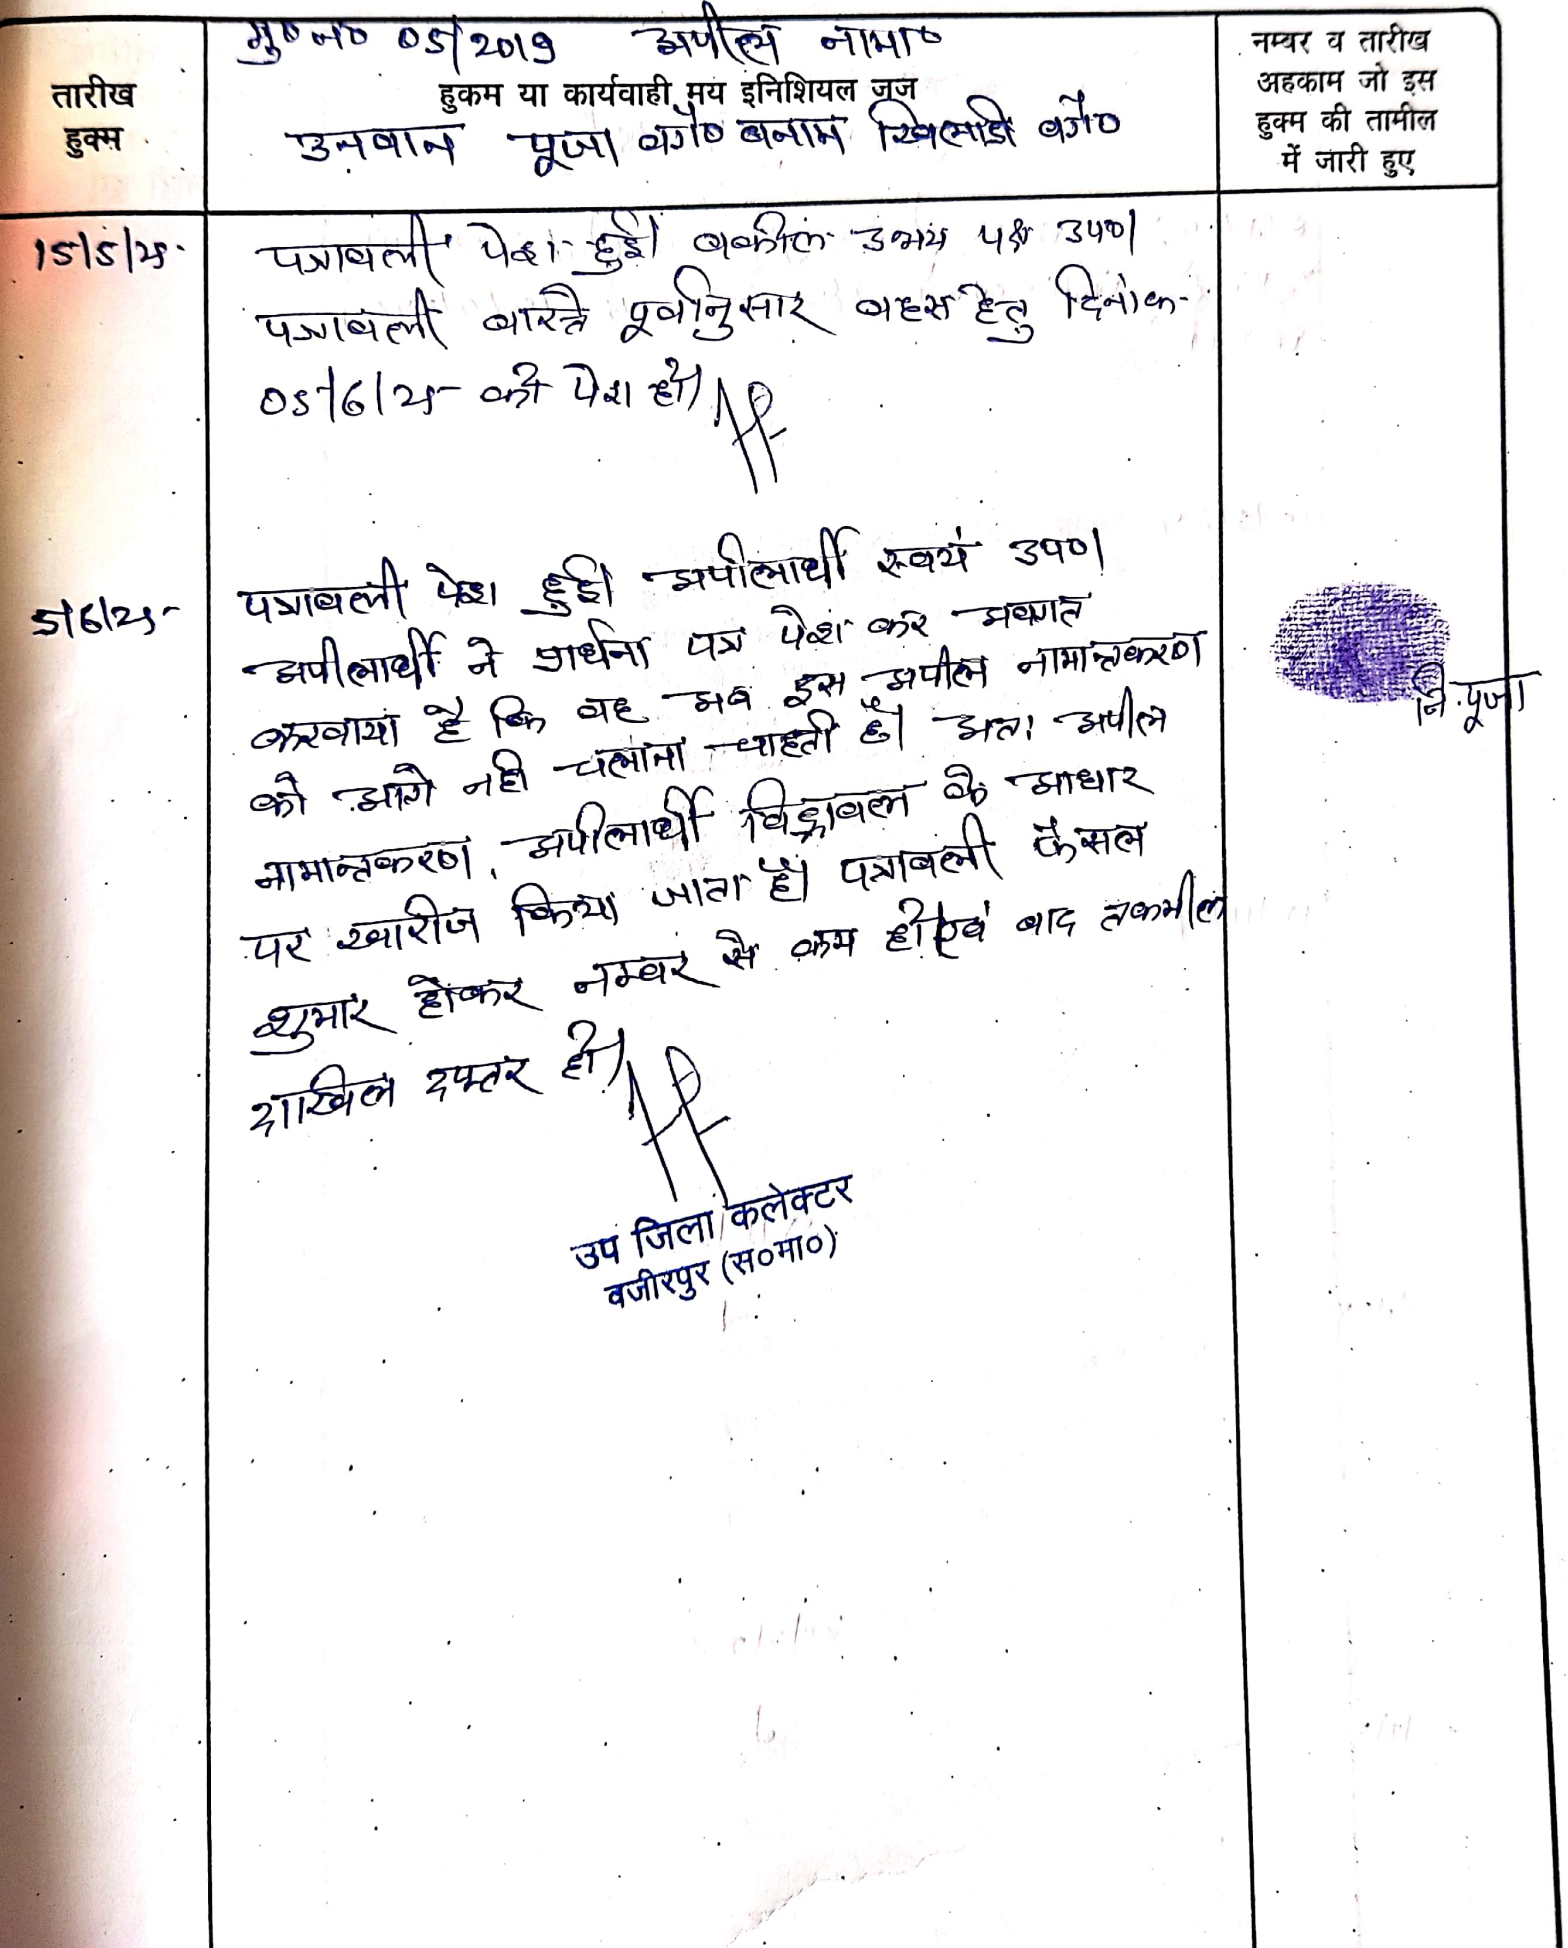 मु० न० 05/2019 अपील नामा०
तारीख
हुक्म
हुकम या कार्यवाही मय इनिशियल जज
उनवान पूजा वगै० बनाम खिलाडी वगै०
नम्बर व तारीख
अहकाम जो इस
हुक्म की तामील
में जारी हुए
15/5/25
पत्रावली पेश हुई। वकील उभय पक्ष उप०।
पत्रावली वास्ते पूर्वानुसार बहस हेतु दिनांक
05/6/25 को पेश हो।
5/6/25
पत्रावली पेश हुई। अपीलार्थी स्वयं उप०।
अपीलार्थी ने प्रार्थना पत्र पेश कर अवगत
करवाया है कि वह अब इस अपील नामान्तकरण
को आगे नही चलाना चाहती है। अतः अपील
नामान्तकरण, अपीलार्थी विड्रावल के आधार
पर खारीज किया जाता है। पत्रावली फैसल
शुमार होकर नम्बर से कम हो एवं बाद तकमील
दाखिल दफ्तर हो।
नि. पूजा
उप जिला कलेक्टर
वजीरपुर (स०मा०)